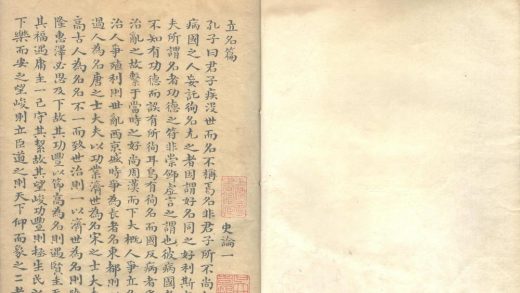 立名篇 史論一
孔子曰君子疾沒世而名不稱焉名非君子所不尚
病國之人妄託徇名先之者因謂好名同之好利斯
夫所謂名者功德之符非崇飾虛言之謂也彼病國
不知有功德而誤有所徇耳烏有徇名而國反病者
治亂之故繫于當時之好尚周漢而下大概人爭立名
治人爭殖利則世亂西京盛時爭為長者名東都則
過人為名唐之士大夫以功業濟世為名宋之士大
高古人為名名不一而致世治則一以濟世為名則
隆惠澤必思及下故其功豐以節高為名則遇賢主
其福遇庸主一己守其絜故其望峻功豐則極生民
下樂而安之望峻則立臣道之則天下仰而象之二者